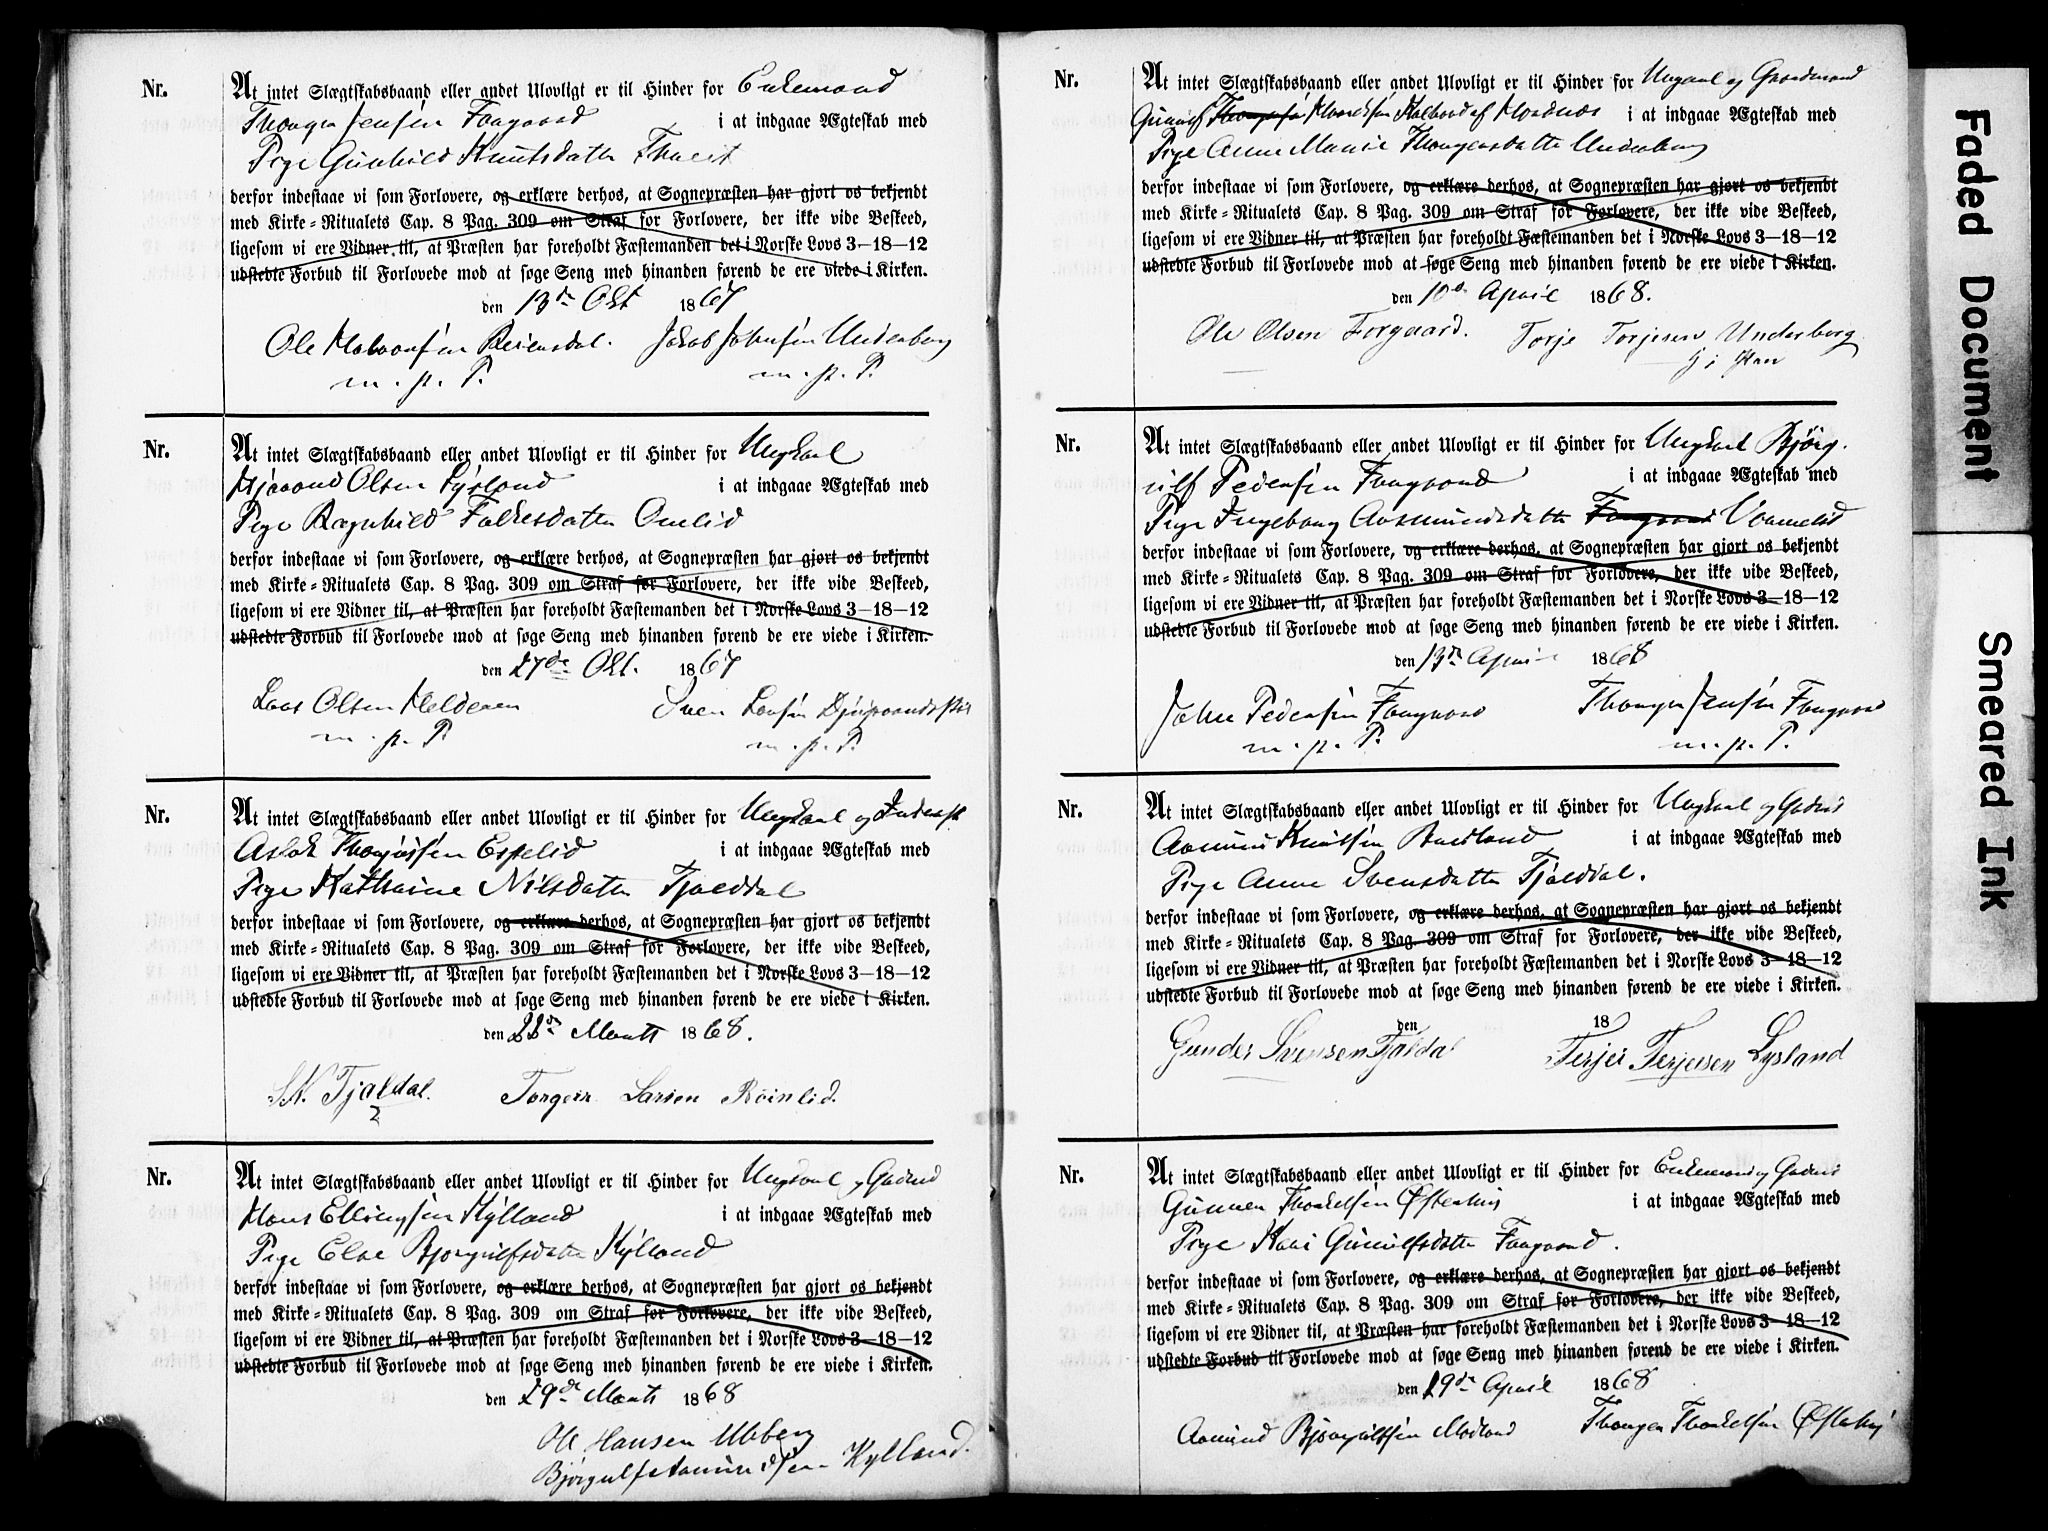 Nr.
At intet Slægtskabsbaand eller andet Ulovligt er til Hinder for Enkemand
Thorger Jensen Faagaard i at indgaae Ægteskab med
Pige Gunhild Knutsdatter
derfor indestaae vi som Forlovere, og erklære derhos, at Sognepræsten har gjort os bekjendt
med Kirke-Ritualets Cap. 8 Pag. 309 om Straf for Forlovere, der ikke vide Beskeed,
ligesom vi ere Vidner til, at Præsten har foreholdt Fæstemanden det i Norske Lovs 3-18-12
udstedte Forbud til Forlovede mod at søge Seng med hinanden førend de ere viede i Kirken.
den 13de Okt 1867
Ole Halvorsen Reiersdal. Jakob Johnsen Underberg
m. p. P. m. p. P.
Nr.
At intet Slægtskabsbaand eller andet Ulovligt er til Hinder for Ungkarl
Olsen Lysland i at indgaae Ægteskab med
Pige Ragnhild Falkesdatter Omlid
derfor indestaae vi som Forlovere, og erklære derhos, at Sognepræsten har gjort os bekjendt
med Kirke-Ritualets Cap. 8 Pag. 309 om Straf for Forlovere, der ikke vide Beskeed,
ligesom vi ere Vidner til, at Præsten har foreholdt Fæstemanden det i Norske Lovs 3-18-12
udstedte Forbud til Forlovede mod at søge Seng med hinanden førend de ere viede i Kirken.
den 27de Okt. 1867
Lars Olsen Sven Larsen
m. p. P. m. p. P.
Nr.
At intet Slægtskabsbaand eller andet Ulovligt er til Hinder for Ungkarl og
Aslak Espelid i at indgaae Ægteskab med
Pige Kathrine Nilsdatter Tjalddal
derfor indestaae vi som Forlovere, og erklære derhos, at Sognepræsten har gjort os bekjendt
med Kirke-Ritualets Cap. 8 Pag. 309 om Straf for Forlovere, der ikke vide Beskeed,
ligesom vi ere Vidner til, at Præsten har foreholdt Fæstemanden det i Norske Lovs 3-18-12
udstedte Forbud til Forlovede mod at søge Seng med hinanden førend de ere viede i Kirken.
den 22de Marts 1868.
S.N. Tjaldal. Torgeir Larsen Röinlid.
Nr.
At intet Slægtskabsbaand eller andet Ulovligt er til Hinder for Ungkarl og Gaardmd
Hans Ellingsen Kylland i at indgaae Ægteskab med
Pige Elae Bjorgulfsdatter Kylland
derfor indestaae vi som Forlovere, og erklære derhos, at Sognepræsten har gjort os bekjendt
med Kirke-Ritualets Cap. 8 Pag. 309 om Straf for Forlovere, der ikke vide Beskeed,
ligesom vi ere Vidner til, at Præsten har foreholdt Fæstemanden det i Norske Lovs 3-18-12
udstedte Forbud til Forlovede mod at søge Seng med hinanden førend de ere viede i Kirken.
den 29de Marts 1868
Ole Hansen Ubberg
Bjørgulf Aamundsen Kylland.
Nr.
At intet Slægtskabsbaand eller andet Ulovligt er til Hinder for Ungkarl og Gaardmand
Gunulf i at indgaae Ægteskab med
Pige Anne Marie Thorgersdatter Underberg
derfor indestaae vi som Forlovere, og erklære derhos, at Sognepræsten har gjort os bekjendt
med Kirke-Ritualets Cap. 8 Pag. 309 om Straf for Forlovere, der ikke vide Beskeed,
ligesom vi ere Vidner til, at Præsten har foreholdt Fæstemanden det i Norske Lovs 3-18-12
udstedte Forbud til Forlovede mod at søge Seng med hinanden førend de ere viede i Kirken.
den 10de April 1868.
Ole Olsen Forgaard. Torje Torjesen Underberg
Nr.
At intet Slægtskabsbaand eller andet Ulovligt er til Hinder for Ungkarl Bjørg-
ulf Pedersen Faagaard i at indgaae Ægteskab med
Pige Ingeborg Aasmundsdatter Faagaard
derfor indestaae vi som Forlovere, og erklære derhos, at Sognepræsten har gjort os bekjendt
med Kirke-Ritualets Cap. 8 Pag. 309 om Straf for Forlovere, der ikke vide Beskeed,
ligesom vi ere Vidner til, at Præsten har foreholdt Fæstemanden det i Norske Lovs 3-18-12
udstedte Forbud til Forlovede mod at søge Seng med hinanden førend de ere viede i Kirken.
den 13de April 1868
John Pedersen Faagaard Thorger Jensen Faagaard
m. p. P. m. p. P.
Nr.
At intet Slægtskabsbaand eller andet Ulovligt er til Hinder for Ungkarl og Gaardmd
Aamund Knutsen i at indgaae Ægteskab med
Pige Anne Svensdatter Tjalddal.
derfor indestaae vi som Forlovere, og erklære derhos, at Sognepræsten har gjort os bekjendt
med Kirke-Ritualets Cap. 8 Pag. 309 om Straf for Forlovere, der ikke vide Beskeed,
ligesom vi ere Vidner til, at Præsten har foreholdt Fæstemanden det i Norske Lovs 3-18-12
udstedte Forbud til Forlovede mod at søge Seng med hinanden førend de ere viede i Kirken.
den 18
Gunder Svensen Tjaldal Terjer Terjersen Lysland
Nr.
At intet Slægtskabsbaand eller andet Ulovligt er til Hinder for Enkemand og Gaardmd
Gunner Thorkelsen Øfteshei i at indgaae Ægteskab med
Pige Kari Gunulfsdatter Faagaard.
derfor indestaae vi som Forlovere, og erklære derhos, at Sognepræsten har gjort os bekjendt
med Kirke-Ritualets Cap. 8 Pag. 309 om Straf for Forlovere, der ikke vide Beskeed,
ligesom vi ere Vidner til, at Præsten har foreholdt Fæstemanden det i Norske Lovs 3-18-12
udstedte Forbud til Forlovede mod at søge Seng med hinanden førend de ere viede i Kirken.
den 29de April 1868
Aamund Bjørgulfsen Modland Thorger Thorkelsen Øfteshei
Faded Document
Smeared Ink